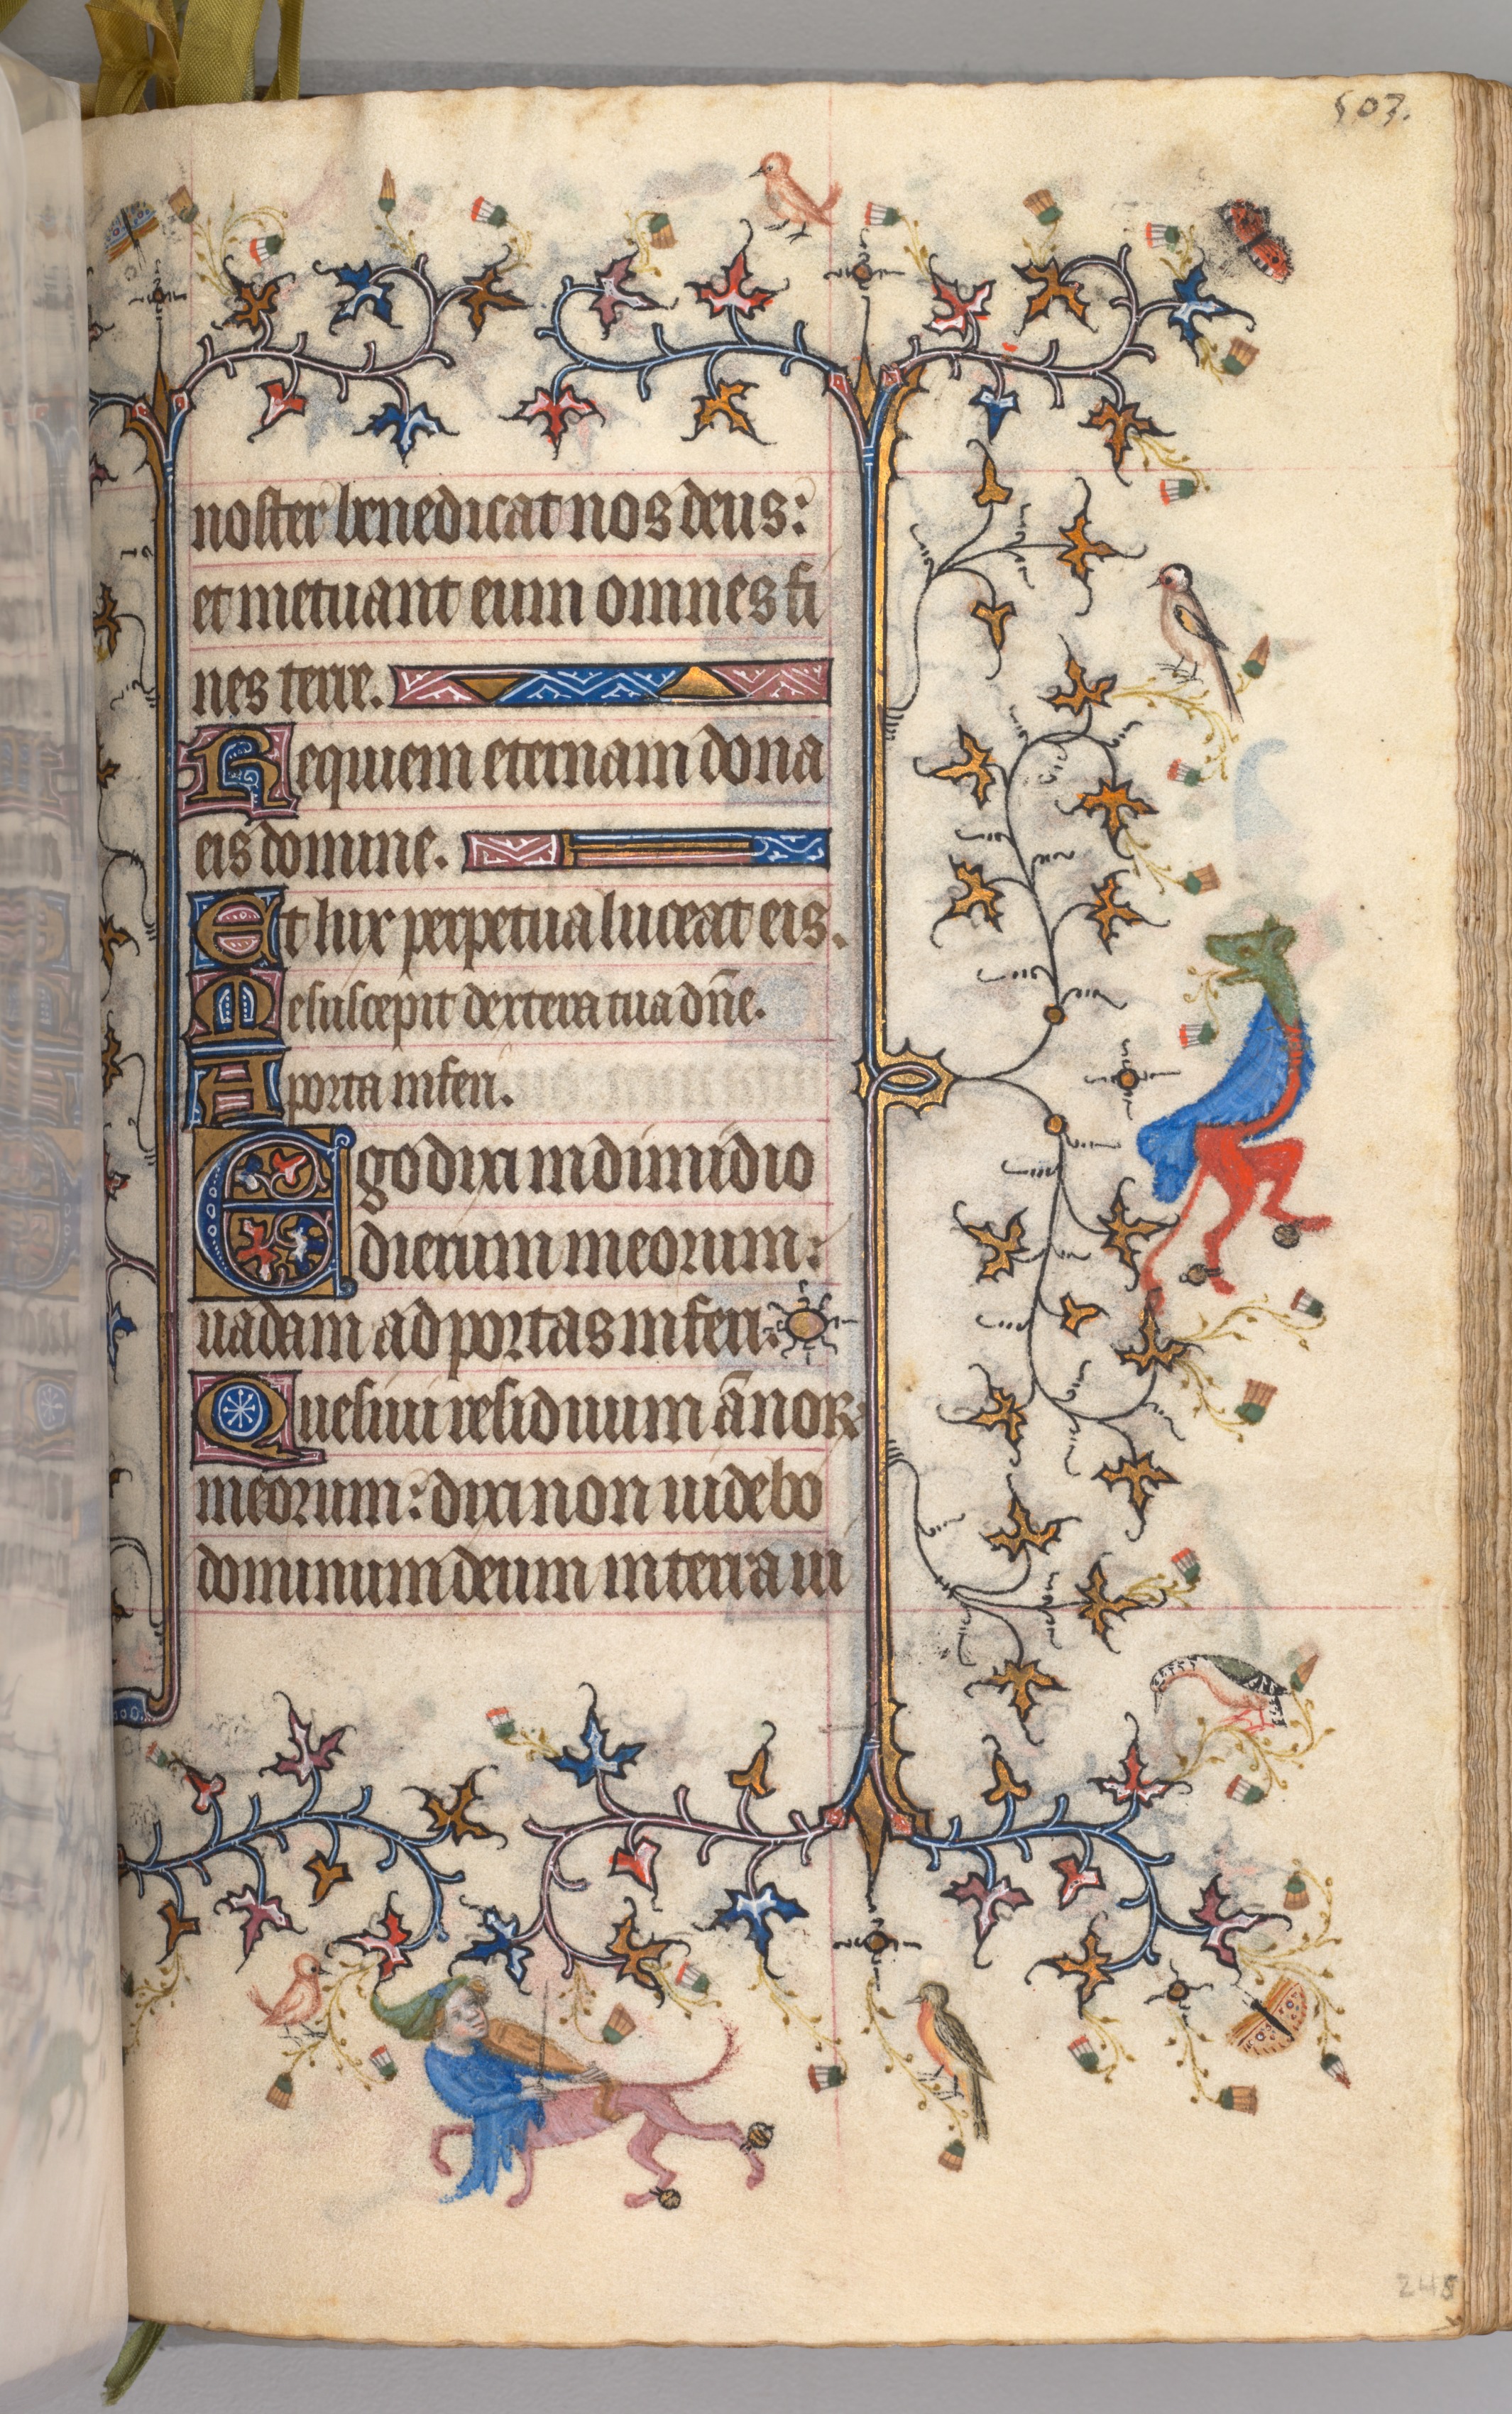 503.
noster benedicat nos deus:
et metuant eum omnes fi
nes terre.
Requiem eternam dona
eis domine.
Et lux perpetua luceat eis.
Me suscepit dextera tua dn̄e.
A porta inferi.
Ego dixi in dimidio
dierum meorum:
uadam ad portas inferi.
Quesiui residuum ānoꝝ
meorum: dixi non uidebo
dominum deum in terra ui
245